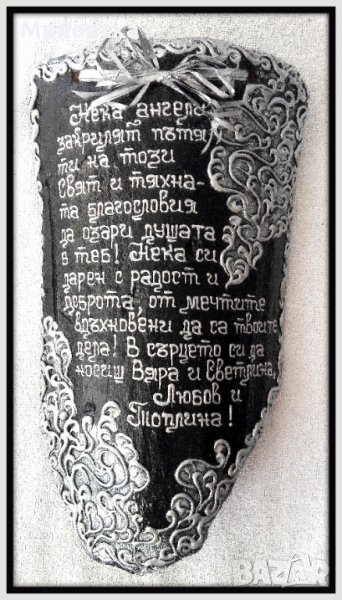 Нека ангели
закрилят пътя
ти на този
Свят и тяхна-
та благословия
да озари душата
в теб! Нека си
дарен с радост и
доброта, от мечтите
вдъхновени да са твоите
дела! В сърцето си да
носиш Вяра и Светлина,
Любов и
Топлина!
BAZAR